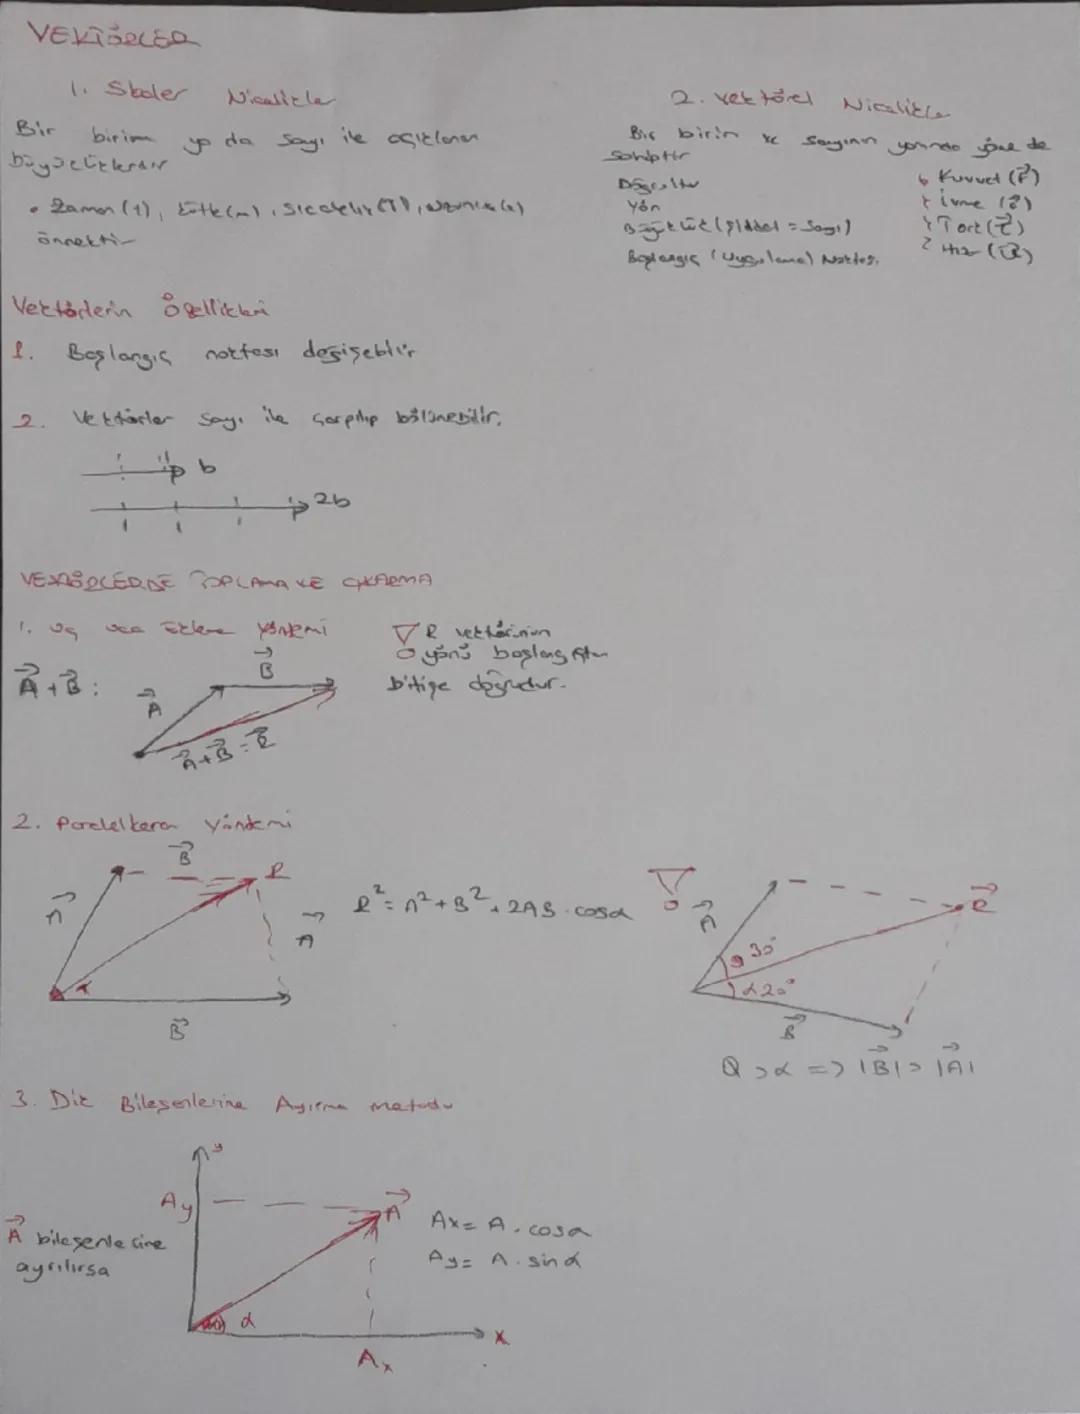 VEKTÖRLER
1. Skaler Nicelikler
Bir birim ya da sayı ile açıklanan
büyüklüklerdir
• Zaman (t), kütle (m), sıcaklık (T),
örnektir
2. Vektörel Nicelikler
Bir birim ve sayının yanında yöne de
sahiptir
Doğrultu
Yön
Büyüklük (şiddet = sayı)
Başlangıç (Uygulama) Noktası
Kuvvet (F)
İvme
Tork (τ)
Hız
Vektörlerin Özellikleri
1. Başlangıç noktası değişebilir
2. Vektörler sayı ile çarpılıp bölünebilir.
b
2b
VEKTÖRLERDE TOPLAMA VE ÇIKARMA
1. Uç uca Ekleme Yöntemi
R vektörünün
yönü başlangıçtan
bitişe doğrudur.
A + B :
B
A
A+B=R
2. Paralelkenar Yöntemi
B
R
A
A
α
B
R²=A²+B²+2AB.cosα
A
R
θ 30°
α 20°
B
θ > α => |B| > |A|
3. Dik Bileşenlerine Ayırma metodu
y
Ay
A
A bileşenlerine
ayrılırsa
Ax = A.cosα
Ay = A.sinα
α
x
Ax